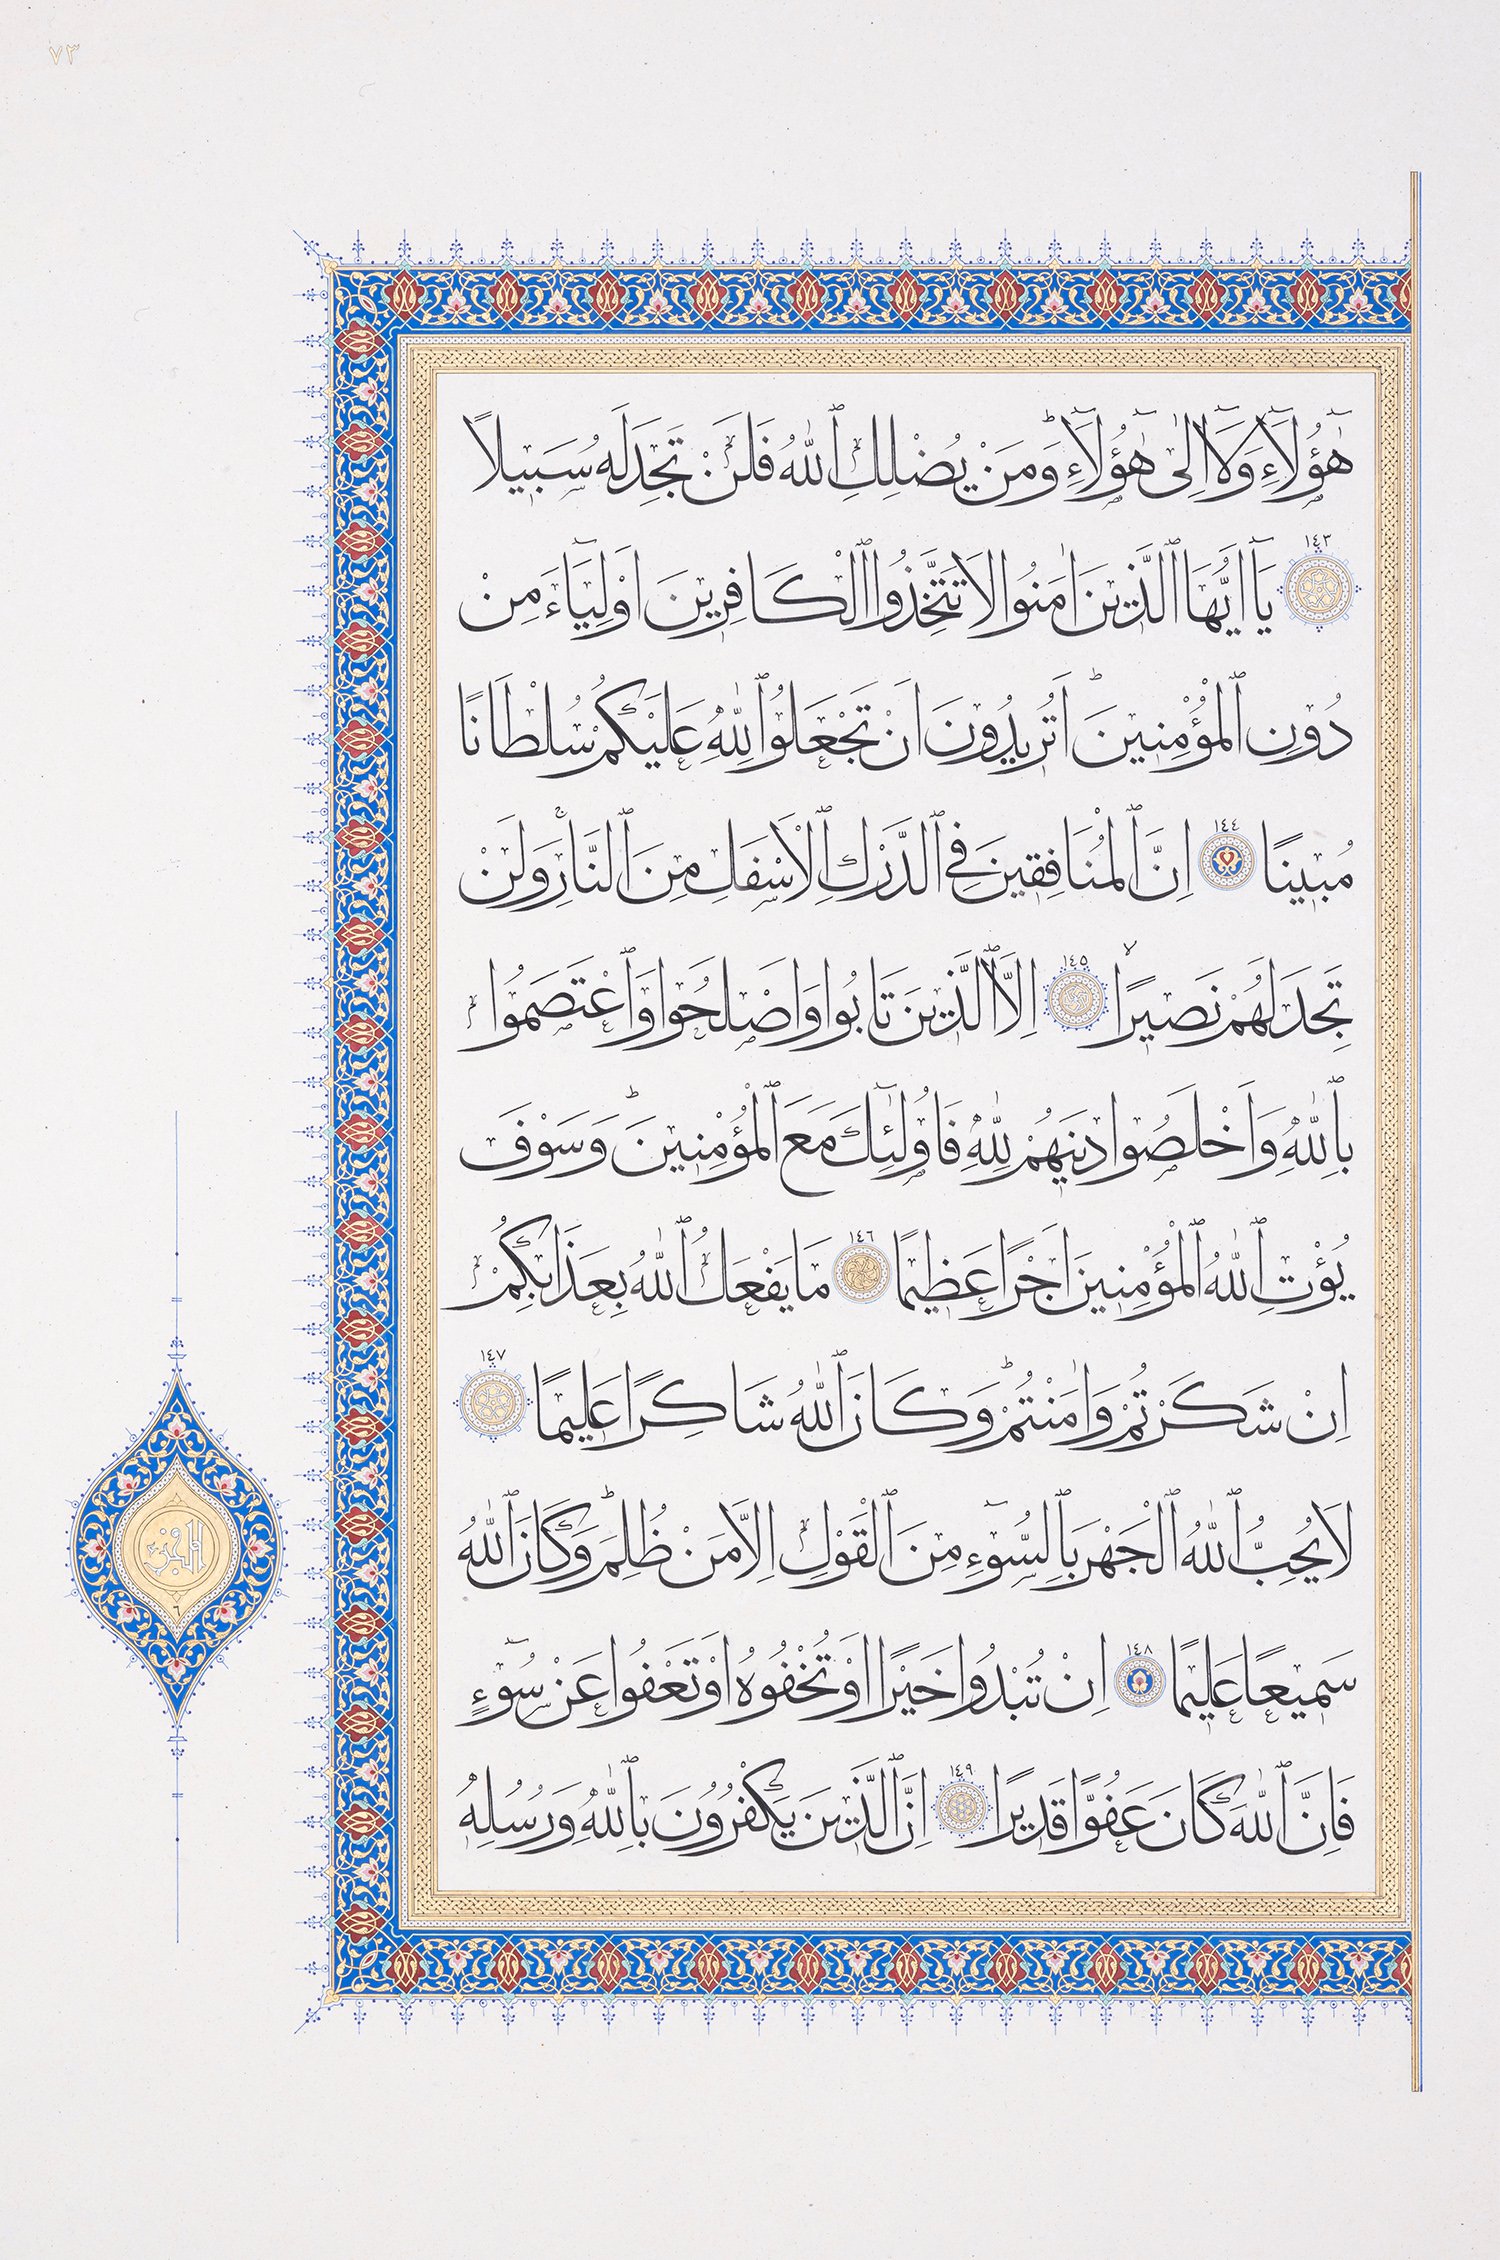 ٧٣
هٰٓؤُ۬لَٓاءِ وَلَٓا اِلٰى هٰٓؤُ۬لَٓاءِۜ وَمَنْ يُضْلِلِ ٱللّٰهُ فَلَنْ تَجِدَ لَهُ سَبِيلًا
١٤٣ يَٓا اَيُّهَا ٱلَّذِينَ اٰمَنُوا لَا تَتَّخِذُوا ٱلْكَافِرِينَ اَوْلِيَٓاءَ مِنْ
دُونِ ٱلْمُؤْمِنِينَۜ اَتُرِيدُونَ اَنْ تَجْعَلُوا لِلّٰهِ عَلَيْكُمْ سُلْطَانًا
مُبِينًا ١٤٤ اِنَّ ٱلْمُنَافِقِينَ فِي ٱلدَّرْكِ ٱلْاَسْفَلِ مِنَ ٱلنَّارِۚ وَلَنْ
تَجِدَ لَهُمْ نَصِيرًاۙ ١٤٥ اِلَّا ٱلَّذِينَ تَابُوا وَاَصْلَحُوا وَٱعْتَصَمُوا
بِٱللّٰهِ وَاَخْلَصُوا دِينَهُمْ لِلّٰهِ فَاُو۬لٰٓئِكَ مَعَ ٱلْمُؤْمِنِينَۜ وَسَوْفَ
يُؤْتِ ٱللّٰهُ ٱلْمُؤْمِنِينَ اَجْرًا عَظِيمًا ١٤٦ مَا يَفْعَلُ ٱللّٰهُ بِعَذَابِكُمْ
اِنْ شَكَرْتُمْ وَاٰمَنْتُمْۜ وَكَانَ ٱللّٰهُ شَاكِرًا عَلِيمًا ١٤٧
لَا يُحِبُّ ٱللّٰهُ ٱلْجَهْرَ بِٱلسُّٓوءِ مِنَ ٱلْقَوْلِ اِلَّا مَنْ ظُلِمَۜ وَكَانَ ٱللّٰهُ
سَمِيعًا عَلِيمًا ١٤٨ اِنْ تُبْدُوا خَيْرًا اَوْ تُخْفُوهُ اَوْ تَعْفُوا عَنْ سُٓوءٍ
فَاِنَّ ٱللّٰهَ كَانَ عَفُوًّا قَدِيرًا ١٤٩ اِنَّ ٱلَّذِينَ يَكْفُرُونَ بِٱللّٰهِ وَرُسُلِهِ
الجزء
٦